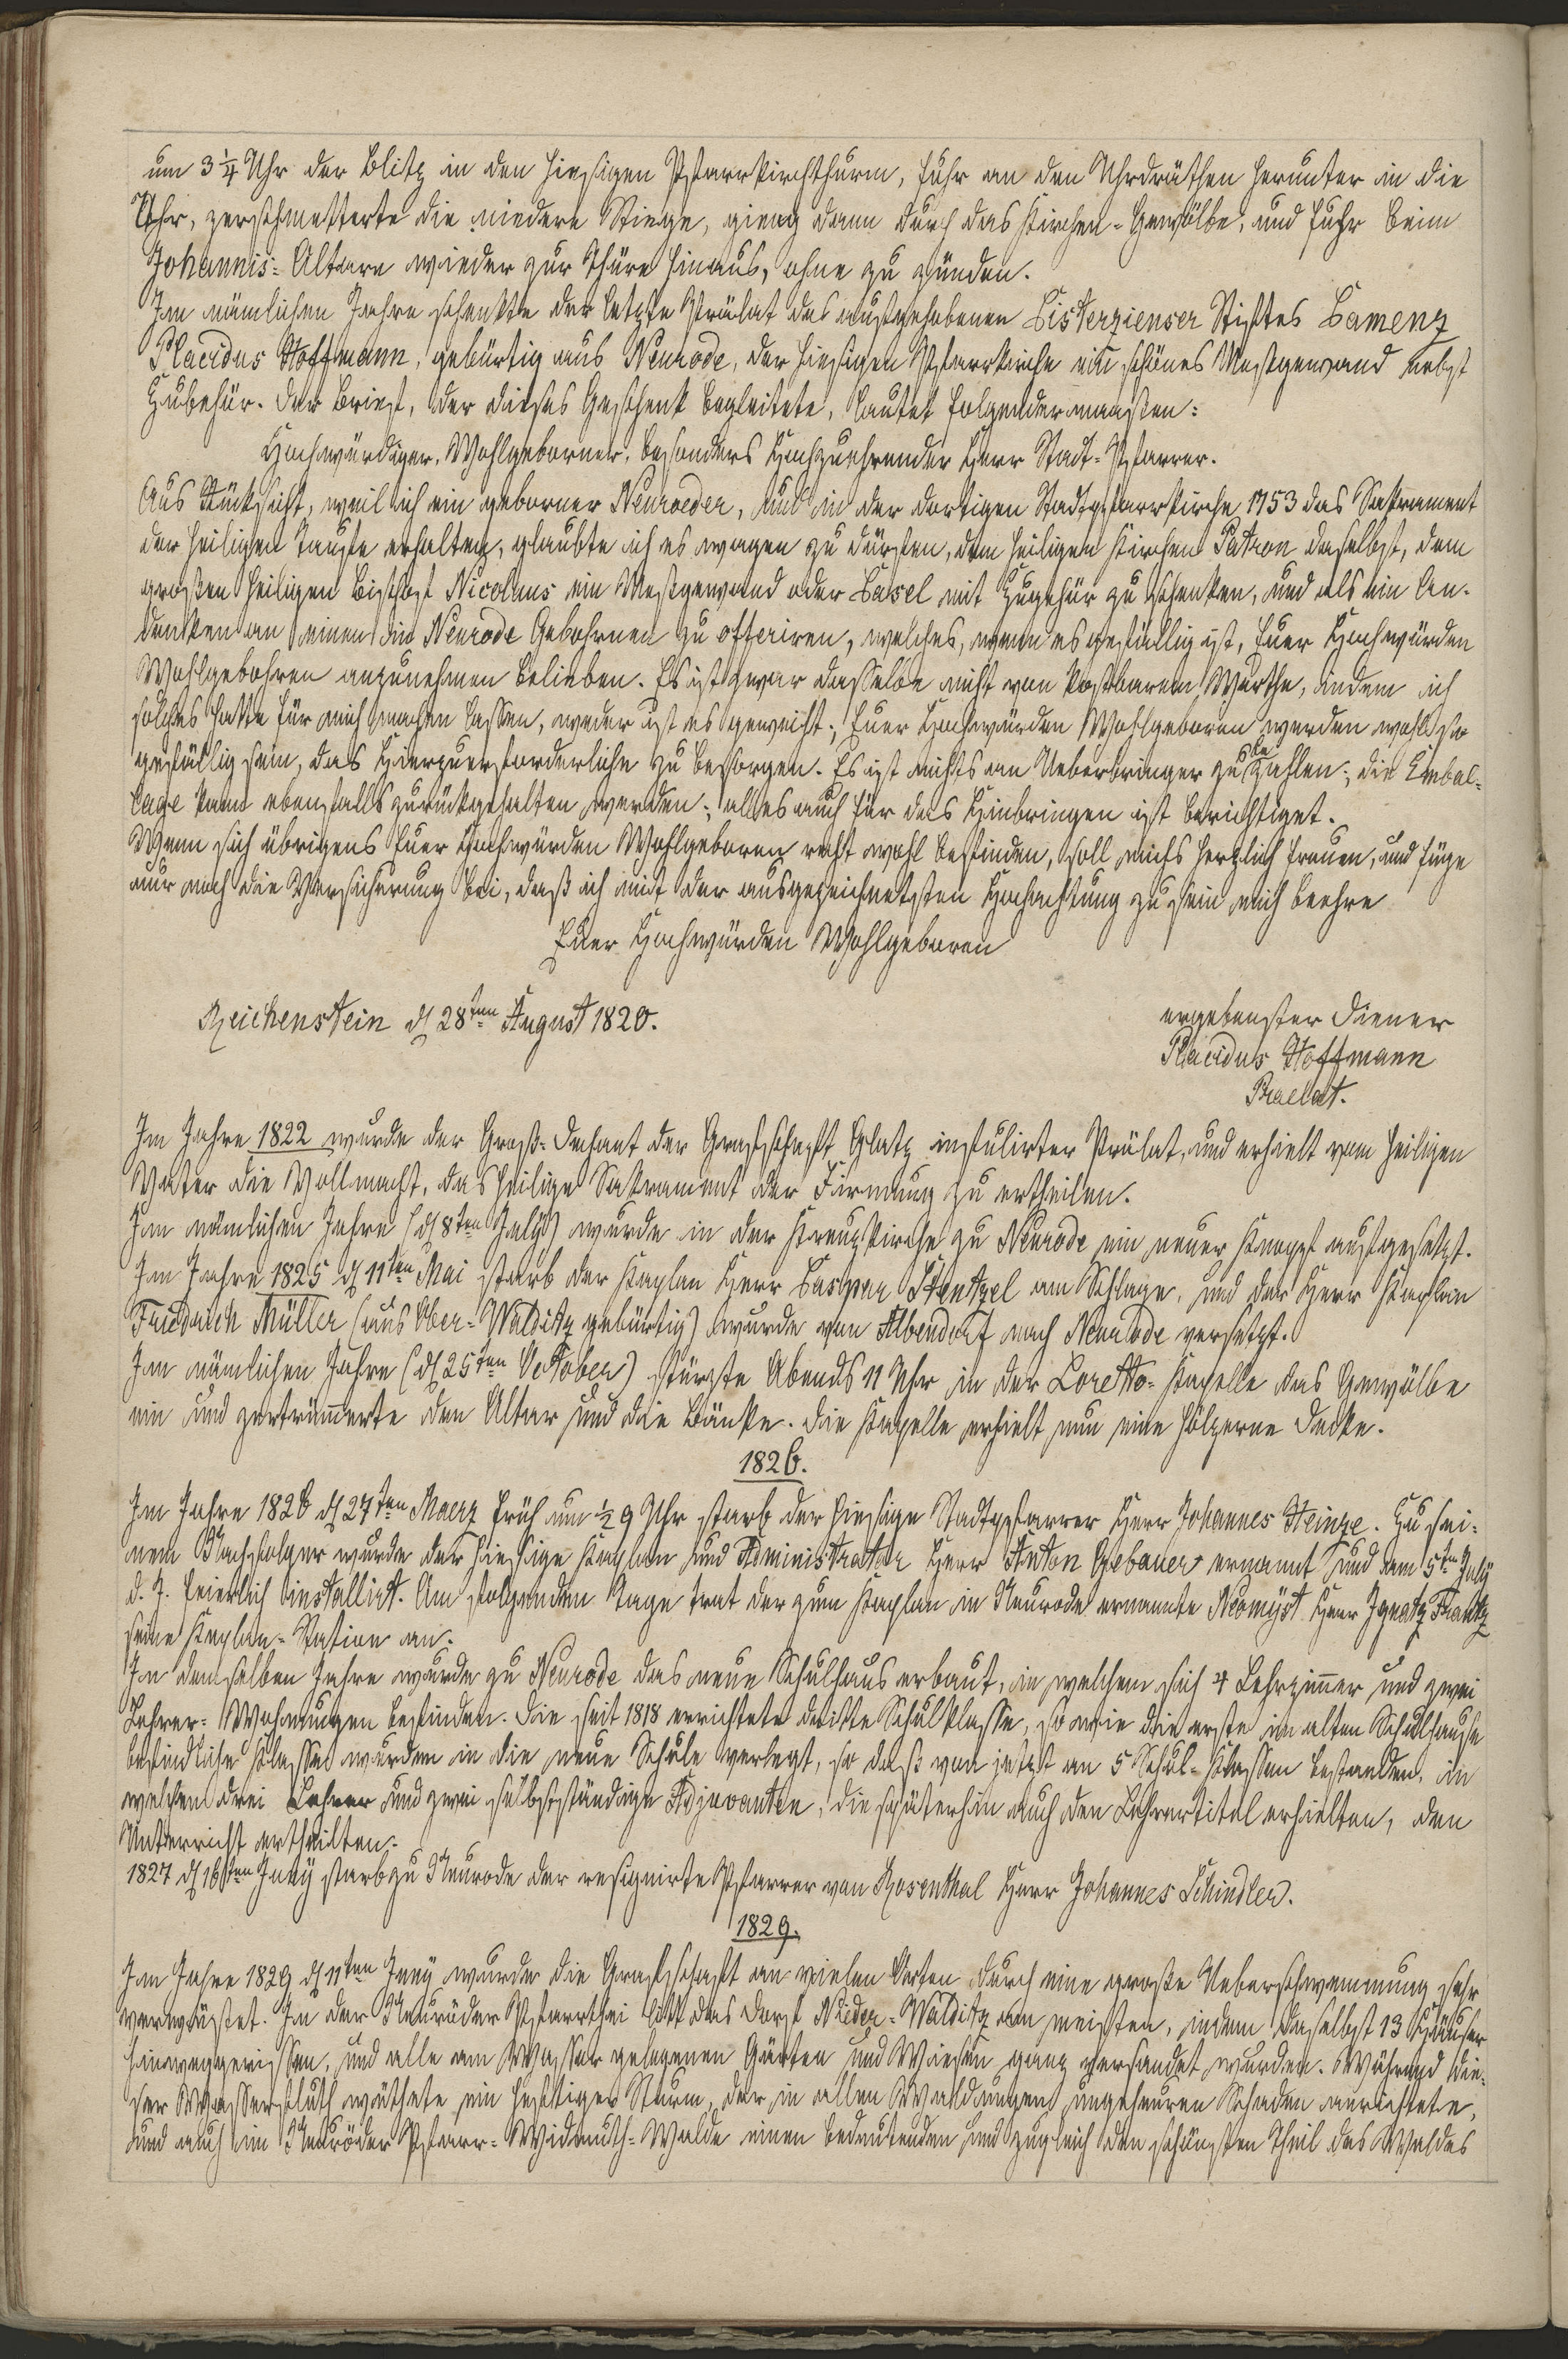 um 3 1/4 Uhr der Blitz in den hiesigen Pfarrkirchthurm, fuhr an den Uhrdräthen herunter in die
Uhr, zerschmetterte die niedere Stiege, gieng dann durch das Kirchen-Gewölbe, und fuhr beim
Johannis-Altare wieder zur Thüre hinaus, ohne zu zünden.
Im nämlichen Jahre schenkte der letzte Prälat des aufgehobenen Cisterzienser Stiftes Camenz
Placidus Hoffmann, gebürtig aus Neurode, der hiesigen Pfarrkirche ein schönes Meßgewand nebst
Zubehör. Der Brief, der dieses Geschenk begleitete, lautet folgendermaaßen:
Hochwürdiger, Wohlgeborner, besonders Hochzuehrender Herr Stadt-Pfarrer.
Aus Rücksicht, weil ich ein geborner Neuroeder, und in der dortigen Stadtpfarrkirche 1753 das Sakrament
der heiligen Taufe erhalten, glaubte ich es wagen zu dürfen, dem heiligen Kirchen Patron daselbst, dem
großen heiligen Bischof Nicolaus ein Meßgewand oder Casel mit Zugehör zu schenken, und als ein An-
denken an einen in Neurode Gebohrnen zu offeriren, welches, wenn es gefällig ist, Euer Hochwürden
Wohlgebohren anzunehmen belieben. Es ist zwar dasselbe nicht von kostbarem Werthe, indem ich
solches hatte für mich machen lassen, weder ist es geweiht; Euer Hochwürden Wohlgeboren werden wohl so
gefällig sein, das Hierzuerforderliche zu besorgen. Es ist nichts an Ueberbringer zu bezahlen; die Embal-
lage kann ebenfalls zurückgehalten werden; alles auch für das Hinbringen ist berichtiget.
Wenn sich übrigens Euer Hochwürden Wohlgeboren recht wohl befinden, soll michs herzlich freuen, und füge
nur noch die Versicherung bei, daß ich mit der ausgezeichnetsten Hochachtung zu sein mich beehre
Euer Hochwürden Wohlgeboren
Reichenstein d 28ten August 1820.
ergebenster Diener
Placidus Hoffmann
Praelat.
Im Jahre 1822 wurde der Groß-Dechant der Grafschaft Glatz infulirter Prälat, und erhielt vom heiligen
Vater die Vollmacht, das heilige Sakrament der Firmung zu ertheilen.
Im nämlichen Jahre (d 8ten July) wurde in der Kreuzkirche zu Neurode ein neuer Knopf aufgesetzt.
Im Jahre 1825 d 11ten Mai starb der Kaplan Herr Caspar Stentzel am Schlage, und der Herr Kaplan
Friedrich Müller (aus Ober-Walditz gebürtig) wurde von Albendorf nach Neurode versetzt.
Im nämlichen Jahre (d 25ten October) stürzte Abends 11 Uhr in der Loretto-Kapelle das Gewölbe
ein und zertrümmerte den Altar und die Bänke. Die Kapelle erhielt nun eine hölzerne Decke.
1826.
Im Jahre 1826 d 27ten Maerz früh um 1/2 9 Uhr starb der hiesige Stadtpfarrer Herr Johannes Heinze. Zu sei-
nem Nachfolger wurde der hiesige Kaplan und Administrator Herr Anton Gebauer ernannt und am 5ten July
d. J. feierlich installirt. Am folgenden Tage trat der zum Kaplan in Neurode ernannte Neomyst Herr Ignatz Frantz
seine Kaplan-Station an.
In demselben Jahre wurde zu Neurode das neue Schulhaus erbaut, in welchem sich 4 Lehrzimmer und zwei
Lehrer-Wohnungen befinden. Die seit 1818 errichtete dritte Schulklasse, so wie die erste im alten Schulhause
befindliche Klasse wurden in die neue Schule verlegt, so daß von jetzt an 5 Schul-Klassen bestanden, in
welchen drei Lehrer und zwei selbstständige Adjuvanten, die späterhin auch den Lehrertitel erhielten, den
Unterricht ertheilten.
1827 d 16ten Juny starb zu Neurode der resignirte Pfarrer von Rosenthal Herr Johannes Schindler.
1829.
Im Jahre 1829 d 11ten Juny wurde die Grafschaft an vielen Orten durch eine große Ueberschwemmung sehr
verwüstet. In der Neuröder Pfarrthei litt das Dorf Nieder-Walditz am meisten, indem daselbst 13 Häuser
hinweggerissen, und alle am Wasser gelegenen Gärten und Wiesen ganz versandet wurden. Während die-
ser Wasserfluth wüthete ein heftiger Sturm, der in allen Waldungen ungeheuren Schaden anrichtete,
und auch im Neuröder Pfarr-Widmuth-Walde einen bedeutenden und zugleich den schönsten Theil des Waldes